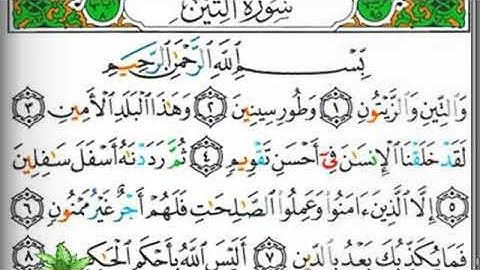 سورة التين
بِسْمِ اللَّهِ الرَّحْمَٰنِ الرَّحِيمِ
وَالتِّينِ وَالزَّيْتُونِ ١ وَطُورِ سِينِينَ ٢ وَهَٰذَا الْبَلَدِ الْأَمِينِ ٣
لَقَدْ خَلَقْنَا الْإِنسَٰنَ فِىٓ أَحْسَنِ تَقْوِيمٍ ٤ ثُمَّ رَدَدْنَٰهُ أَسْفَلَ سَٰفِلِينَ
٥ إِلَّا الَّذِينَ ءَامَنُوا۟ وَعَمِلُوا۟ الصَّٰلِحَٰتِ فَلَهُمْ أَجْرٌ غَيْرُ مَمْنُونٍ ٦
فَمَا يُكَذِّبُكَ بَعْدُ بِالدِّينِ ٧ أَلَيْسَ اللَّهُ بِأَحْكَمِ الْحَٰكِمِينَ ٨